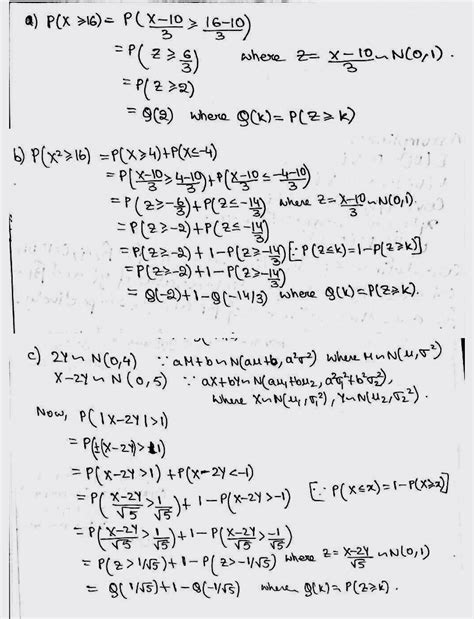 a) P(X ≥ 16) = P( (X-10)/3 ≥ (16-10)/3 )
= P( Z ≥ 6/3 ) where Z = (X-10)/3 ~ N(0,1).
= P(Z ≥ 2)
= Q(2) where Q(k) = P(Z ≥ k)
b) P(X² ≥ 16) = P(X ≥ 4) + P(X ≤ -4)
= P( (X-10)/3 ≥ (4-10)/3 ) + P( (X-10)/3 ≤ (-4-10)/3 )
= P( Z ≥ -6/3 ) + P( Z ≤ -14/3 ) where Z = (X-10)/3 ~ N(0,1).
= P(Z ≥ -2) + P( Z ≤ -14/3 )
= P(Z ≥ -2) + 1 - P(Z ≥ -14/3) [∵ P(Z ≤ k) = 1 - P(Z ≥ k)]
= P(Z ≥ -2) + 1 - P(Z ≥ -14/3)
= Q(-2) + 1 - Q(-14/3) where Q(k) = P(Z ≥ k).
c) 2Y ~ N(0,4) ∵ aM+b ~ N(aμ+b, a²σ²) where M ~ N(μ, σ²)
X-2Y ~ N(0,5) ∵ aX+bY ~ N(aμ₁+bμ₂, a²σ₁²+b²σ₂²),
where X ~ N(μ₁, σ₁²), Y ~ N(μ₂, σ₂²).
Now, P(|X-2Y| > 1)
= P(±(X-2Y) > 1)
= P(X-2Y > 1) + P(X-2Y < -1)
= P( (X-2Y)/√5 > 1/√5 ) + 1 - P(X-2Y > -1) [∵ P(X ≤ x) = 1 - P(X ≥ x)]
= P( (X-2Y)/√5 > 1/√5 ) + 1 - P( (X-2Y)/√5 > -1/√5 )
= P(Z > 1/√5) + 1 - P(Z > -1/√5) where Z = (X-2Y)/√5 ~ N(0,1)
= Q(1/√5) + 1 - Q(-1/√5) where Q(k) = P(Z ≥ k).